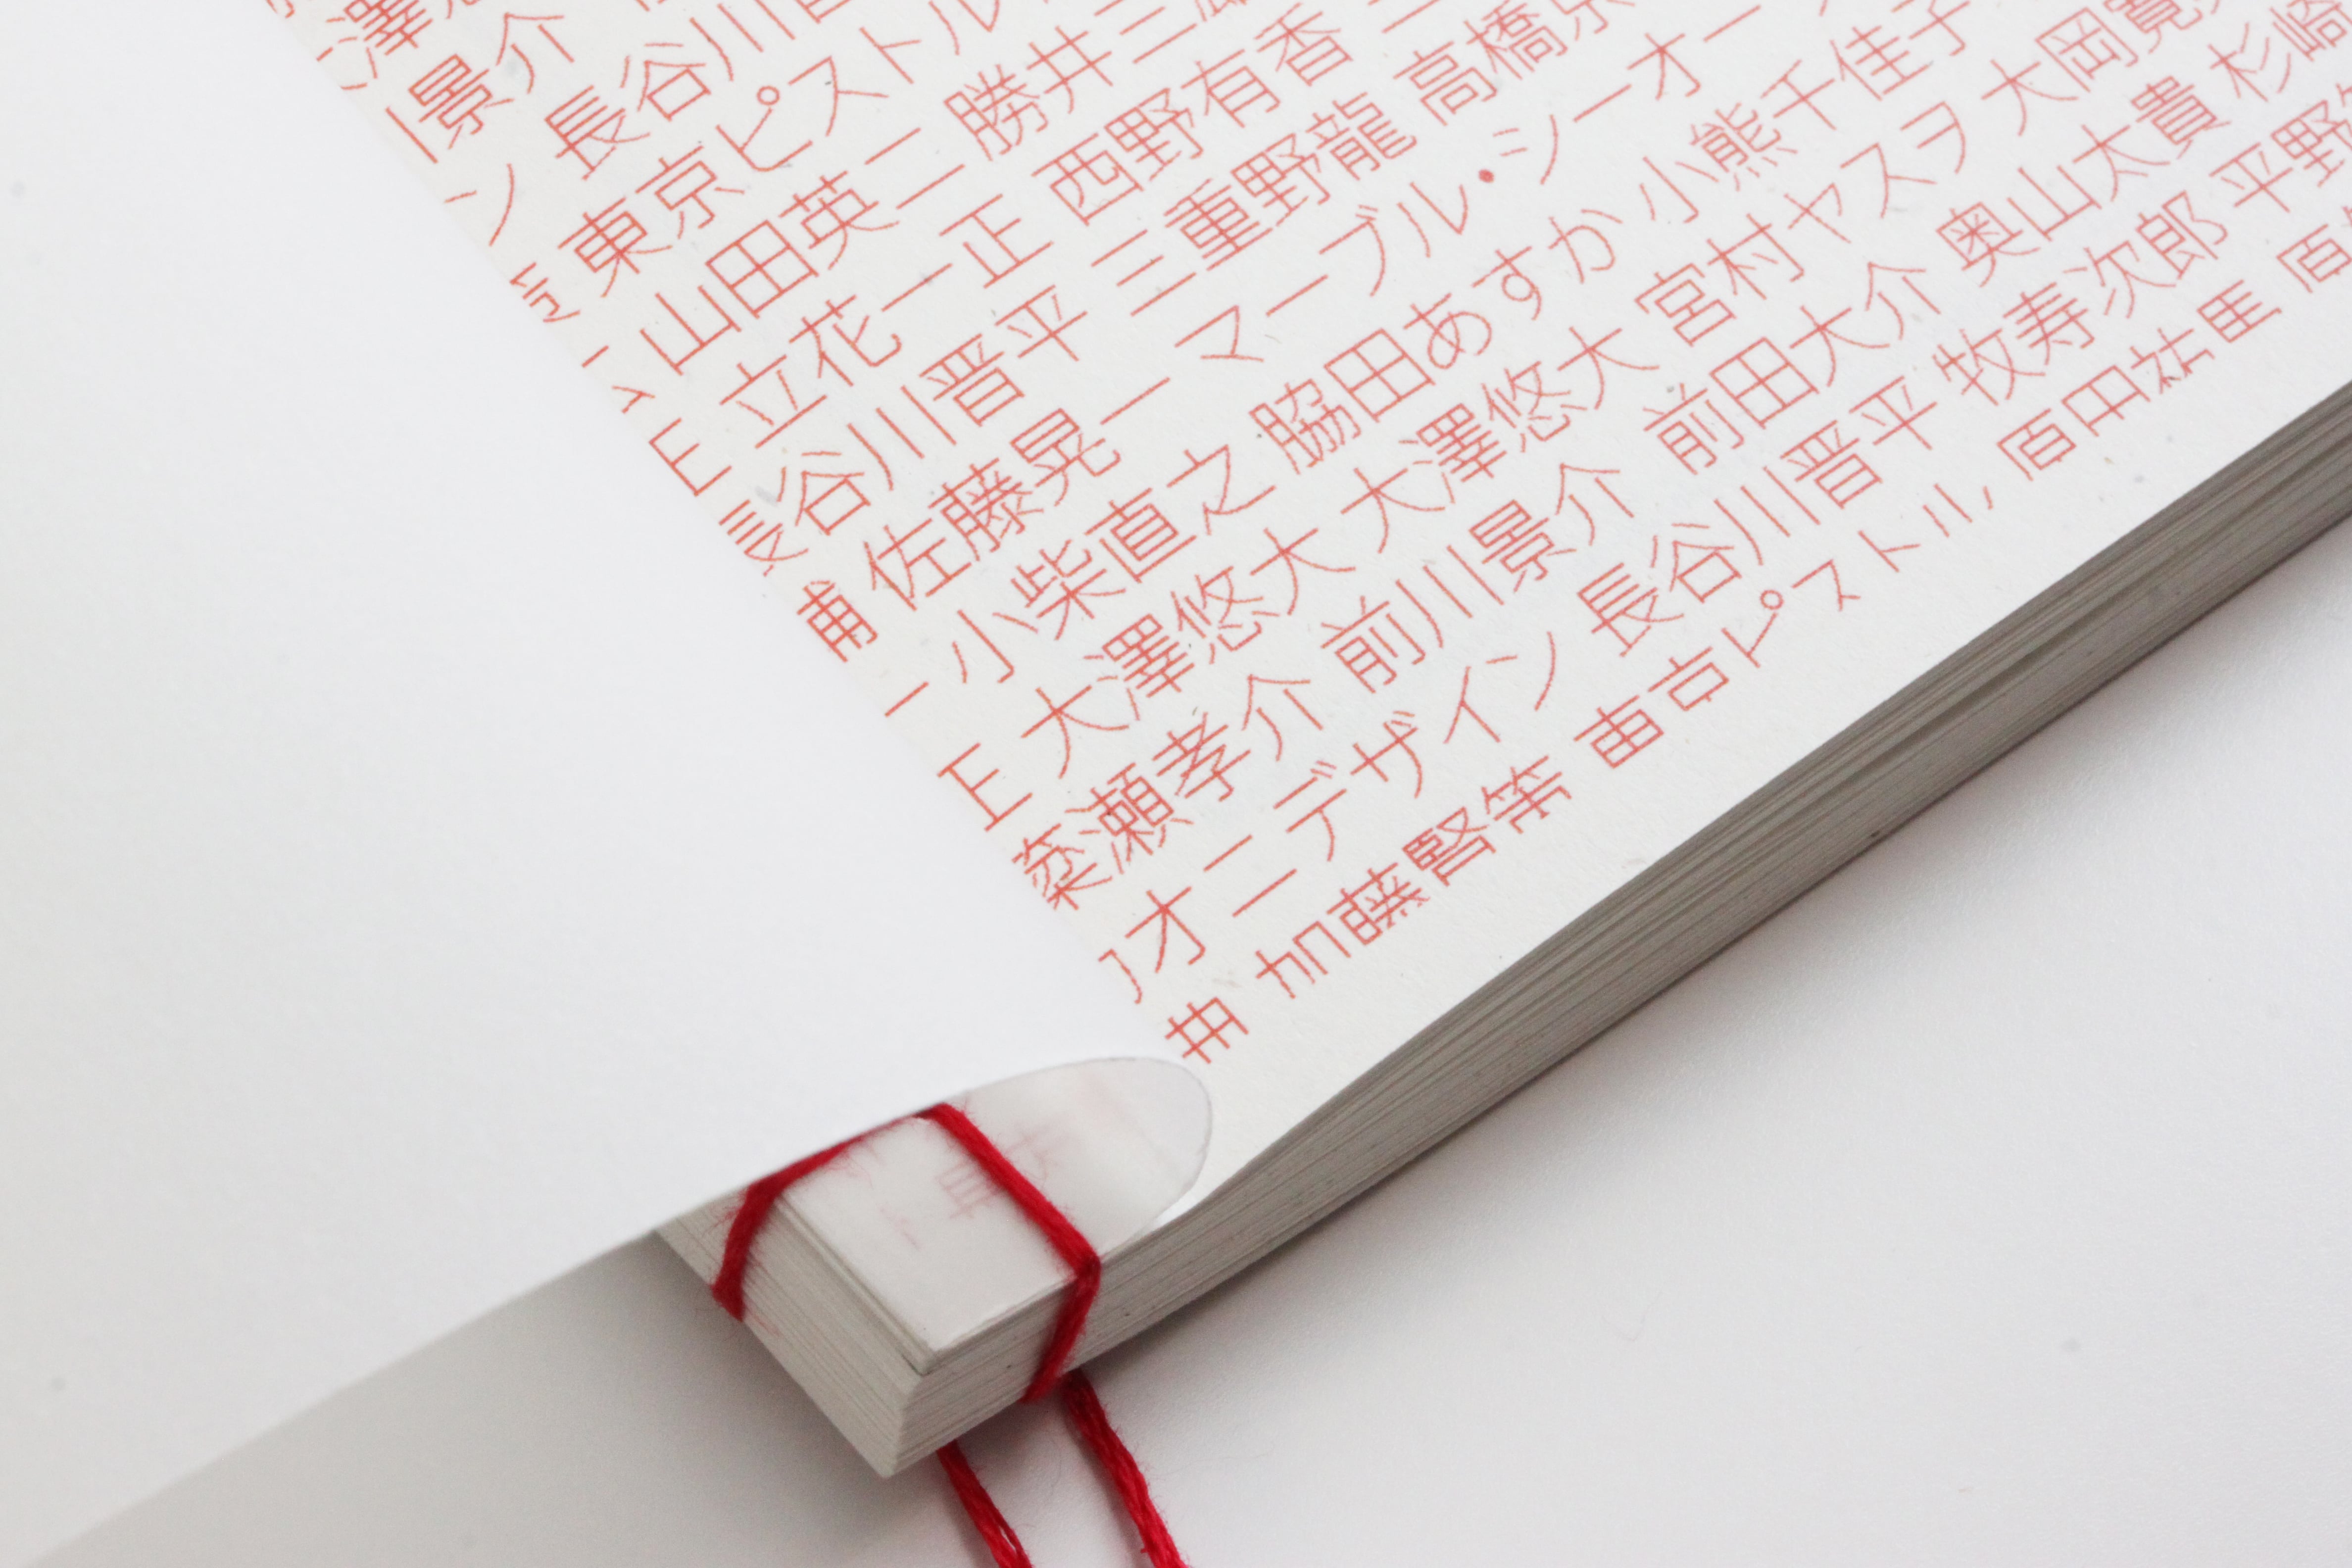 大澤
景介
ン 長谷川
東京ピストル
山田英二 勝井三雄
立花一正 西野有香
長谷川晋平 三重野龍 高橋
佐藤晃一 マーブル・シーオー
小柴直之 脇田あすか 小熊千佳子
大澤悠大 大澤悠大 宮村ヤスヲ 大岡寛
瀬孝介 前川景介 前田大介 奥山太貴 杉崎
オニデザイン 長谷川晋平 牧寿次郎 平野
加藤賢策 東京ピストル 原田祐馬